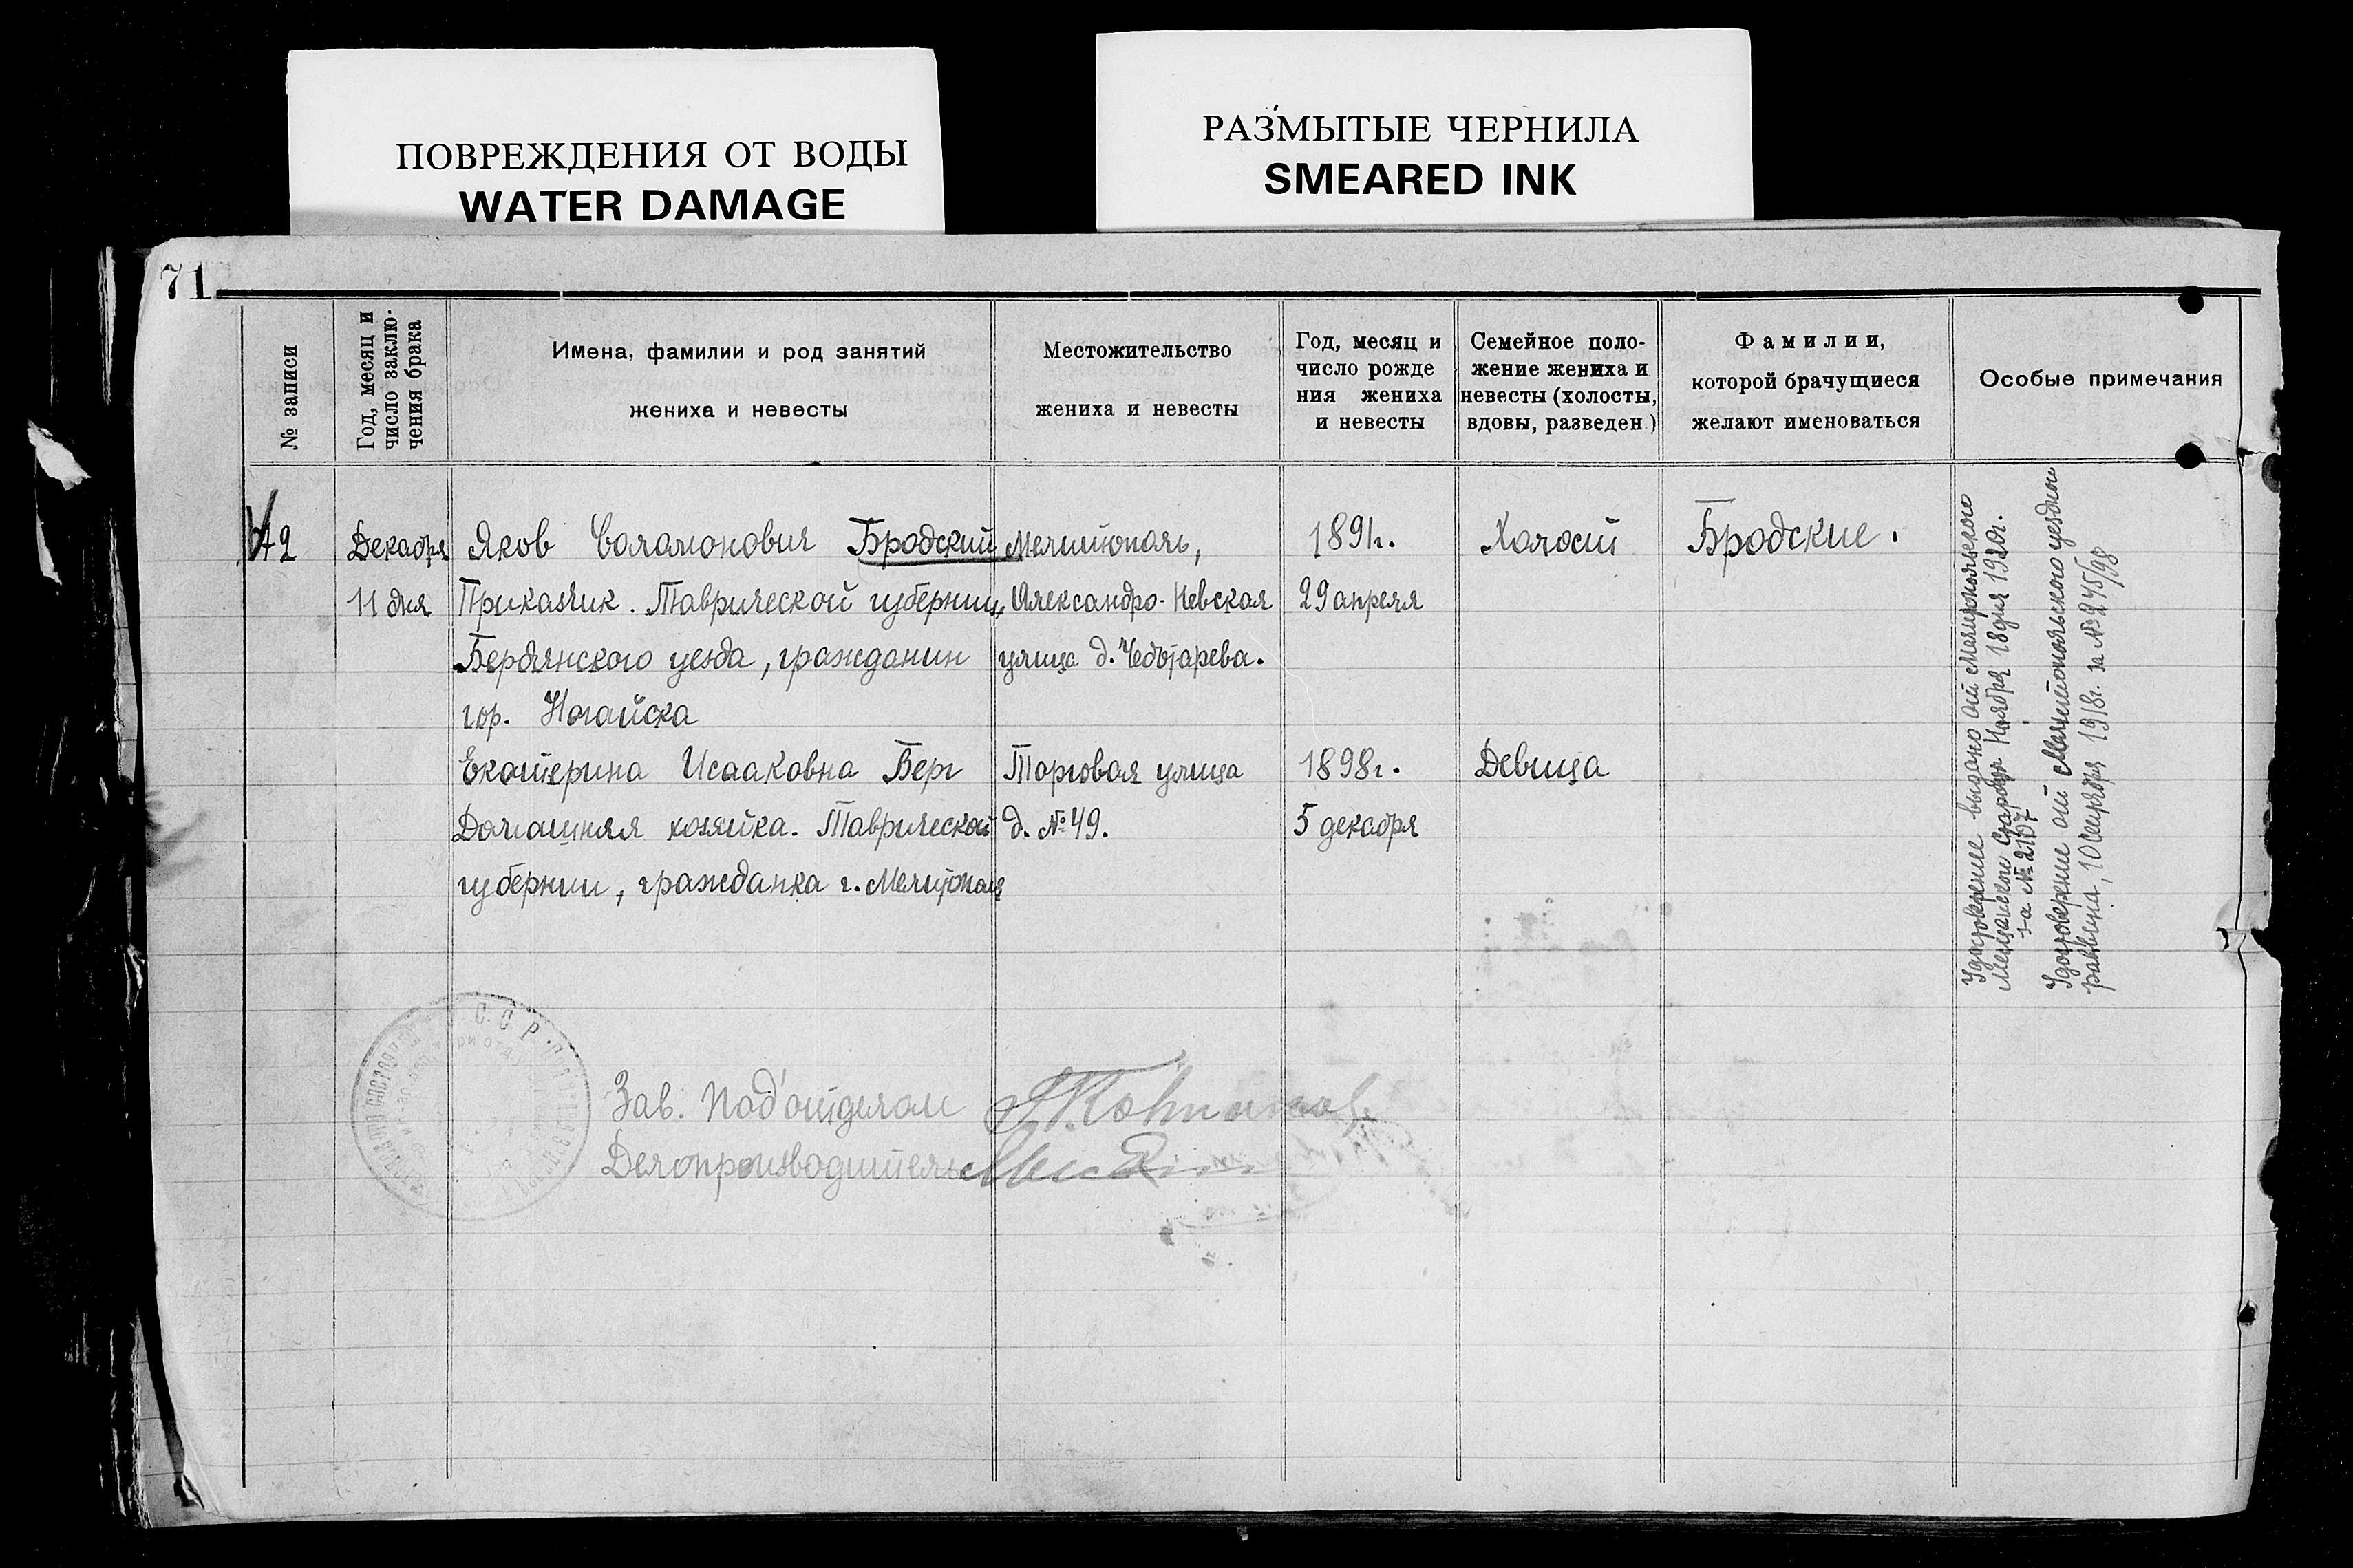 ПОВРЕЖДЕНИЯ ОТ ВОДЫ
WATER DAMAGE
РАЗМЫТЫЕ ЧЕРНИЛА
SMEARED INK
71
№ записи
Год, месяц и
число заклю-
чения брака
Имена, фамилии и род занятий
жениха и невесты
Местожительство
жениха и невесты
Год, месяц и
число рожде
ния жениха
и невесты
Семейное поло-
жение жениха и
невесты (холосты,
вдовы, разведен.)
Фамилии,
которой брачущиеся
желают именоваться
Особые примечания
42
Декабря
11 дня
Яков Соломонович Бродский
Приказчик. Таврической губернии,
Бердянского уезда, гражданин
гор. Ногайска
Екатерина Исааковна Берг
Домашняя хозяйка. Таврической
губернии, гражданка г. Мелитополя
Мелитополь,
Александро-Невская
улица д. Чеботарева.
Торговая улица
д. №49.
1891г.
29 апреля
1898г.
5 декабря
Холост
Девица
Бродские.
Удостоверение выдано от Мелитопольского
Мещанского Старосты Ноября 18 дня 1920г.
за № 2107
Удостоверение от Мелитопольского уездного
раввина, 10 Сентября 1918г. за № 245/98
ССР
Зав. Под'отделом
Делопроизводитель